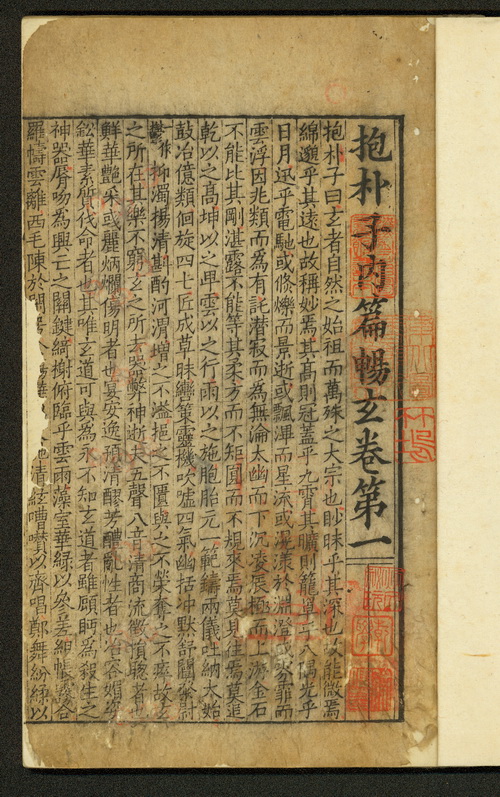 抱朴子内篇暢玄卷第一
抱朴子曰玄者自然之始祖而萬殊之大宗也眇昧乎其深也故能微焉
綿邈乎其遠也故稱妙焉其高則冠蓋乎九霄其曠則籠罩乎八隅光乎
日月迅乎電馳或倏爍而景逝或飄滭而星流或滉漾於淵澄或雰霏而
雲浮因兆類而為有託潜寂而為無淪大幽而下沉凌辰極而上游金石
不能比其剛湛露不能等其柔方而不矩圓而不規來焉莫見往焉莫追
乾以之高坤以之卑雲以之行雨以之施胞胎元一範鑄兩儀吐納大始
鼓冶億類佪旋四七匠成草昧轡策靈機吹噓四氣幽括沖默舒闡粲尉
抑濁揚清斟酌河渭增之不溢挹之不匱與之不榮奪之不瘁故玄
之所在其樂不窮玄之所去器弊神逝夫五聲八音清商流徵損聦者也
鮮華艷采或麗炳爛傷明者也宴安逸預清醪芳醴亂性者也冶容媚姿
鈆華素質伐命者也其唯玄道可與為永不知玄道者雖顧眄為殺生之
神器脣吻為興亡之關鍵綺榭俯臨乎雲雨藻室華緑以參差組帳霧合
羅幬雲離西毛陳於閒房馳清絃嘈囋以齊唱鄭舞紛綵以